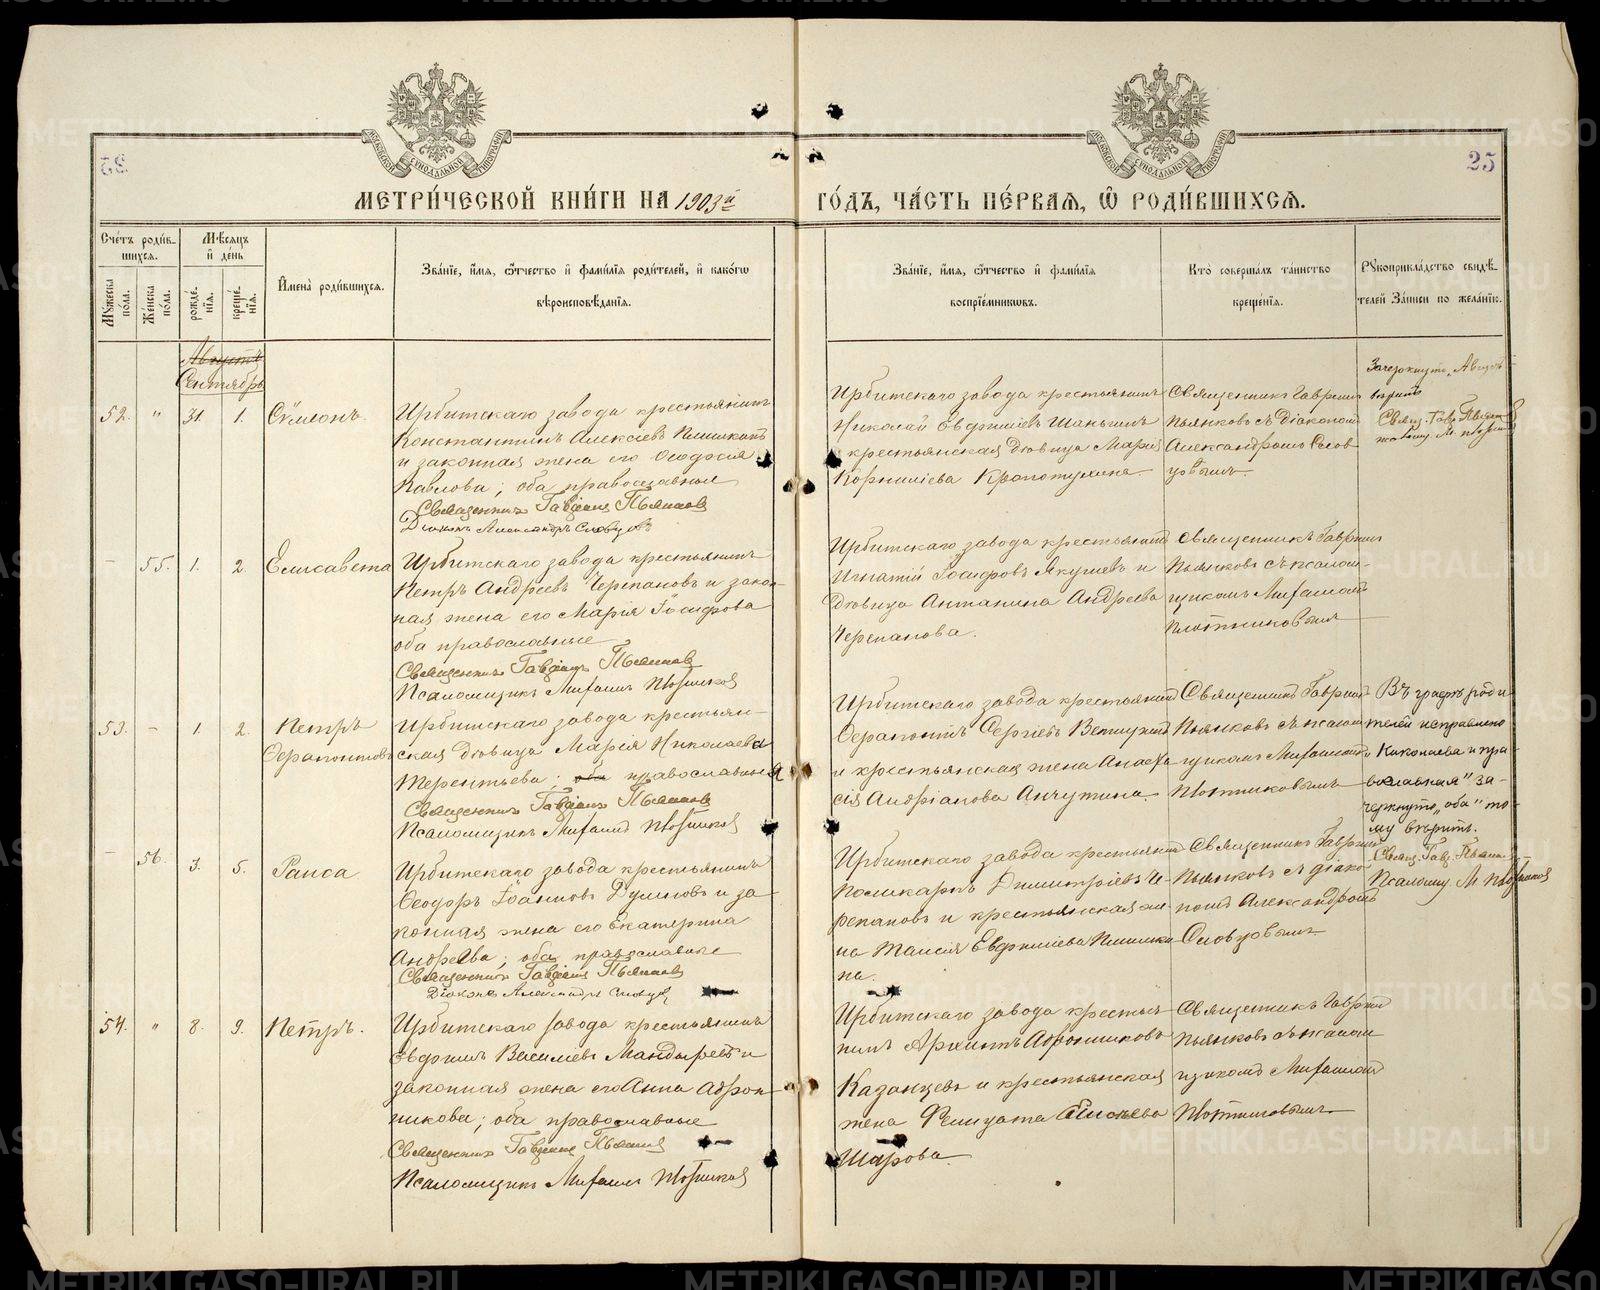 25
МЕТРИ́ЧЕСКОЙ КНИ́ГИ НА 1903й ГО́ДЪ, ЧА́СТЬ ПЕ́РВАЯ, Ѽ РОДИ́ВШИХСЯ.
Сче́тъ роди́в-
шихся.
Му́жеска по́ла.
Же́нска по́ла.
Мѣ́сяцъ
и҆ де́нь
рожде́-
нїя.
креще́-
нїя.
И҆мена̀ роди́вшихся.
Зва́нїе, и҆́мя, ѻ҆́тчество и҆ фами́лїя роди́телей, и҆ како́гѡ
вѣроисповѣ́данїя.
Зва́нїе, и҆́мя, ѻ҆́тчество и҆ фами́лїя
воспрїе́мникѡвъ.
Кто̀ соверша́лъ та́инство
креще́нїя.
Рꙋкоприкла́дство свидѣ́-
телей за́писи по жела́нїю.
Августъ
Сентябрь
52. " 31 1. Сѵмеонъ.
Ирбитскаго завода крестьянинъ
Константинъ Алексѣевъ
и законная жена его Ѳеодосія
Павлова; оба православные
Священникъ Гавріилъ Пьянковъ
Діаконъ Александръ Словцовъ
Ирбитскаго завода крестьянинъ
Николай Евфиміевъ Шаньгинъ
и крестьянская дѣвица Марія
Корниліева Кропотухина
Священникъ Гавріилъ
Пьянковъ съ діакономъ
Александромъ Словцовымъ
Зачеркнуто „Августъ"
вѣрить
Свящ. Гавр. Пьянковъ
– 55. 1. 2. Елисавета
Ирбитскаго завода крестьянинъ
Петръ Андреевъ Черепановъ и закон-
ная жена его Марія Іосифова
оба православные
Священникъ Гавріилъ Пьянковъ
Псаломщикъ Михаилъ Плотниковъ
Ирбитскаго завода крестьянинъ
Игнатій Іосифовъ Якушевъ и
дѣвица Антанина Андреева
Черепанова.
Священникъ Гавріилъ
Пьянковъ съ псалом-
щикомъ Михаиломъ
Плотниковымъ
53. – 1. 2. Петръ
Ѳерапонтовъ
Ирбитскаго завода крестьян-
ская дѣвица Марія Николаева
Терентьева; оба православная
Священникъ Гавріилъ Пьянковъ
Псаломщикъ Михаилъ Плотниковъ
Ирбитскаго завода крестьянинъ
Ѳерапонтъ Сергіевъ
и крестьянская жена Анаста-
сія Андріанова Анчутина.
Священникъ Гавріилъ
Пьянковъ съ псалом-
щикомъ Михаиломъ
Плотниковымъ
Въ графѣ роди-
телей исправлено
„Николаева и пра-
вославная" за-
черкнуто „оба" то-
му вѣрить.
Свящ. Гавр. Пьянковъ
Псаломщ. М. Плотниковъ
– 56. 3. 5. Раиса
Ирбитскаго завода крестьянинъ
Ѳеодоръ Іоанновъ Душновъ и за-
конная жена его Екатерина
Андреева; оба православные
Священникъ Гавріилъ Пьянковъ
Діаконъ Александръ Словцовъ
Ирбитскаго завода крестьянинъ
Поликарпъ Димитріевъ Че-
репановъ и крестьянская же-
на Таисія Евфиміева
на.
Священникъ Гавріилъ
Пьянковъ съ діако-
номъ Александромъ
Словцовымъ
54. " 8. 9. Петръ.
Ирбитскаго завода крестьянинъ
Евфимъ Василіевъ и
законная жена его Анна Афрон-
никова; оба православные
Священникъ Гавріилъ Пьянковъ
Псаломщикъ Михаилъ Плотниковъ
Ирбитскаго завода крестья-
нинъ Архиппъ
Казанцевъ и крестьянская
жена Фелицата
Шарова.
Священникъ Гавріилъ
Пьянковъ съ псалом-
щикомъ Михаиломъ
Плотниковымъ
METRIKI.GASO-URAL.RU